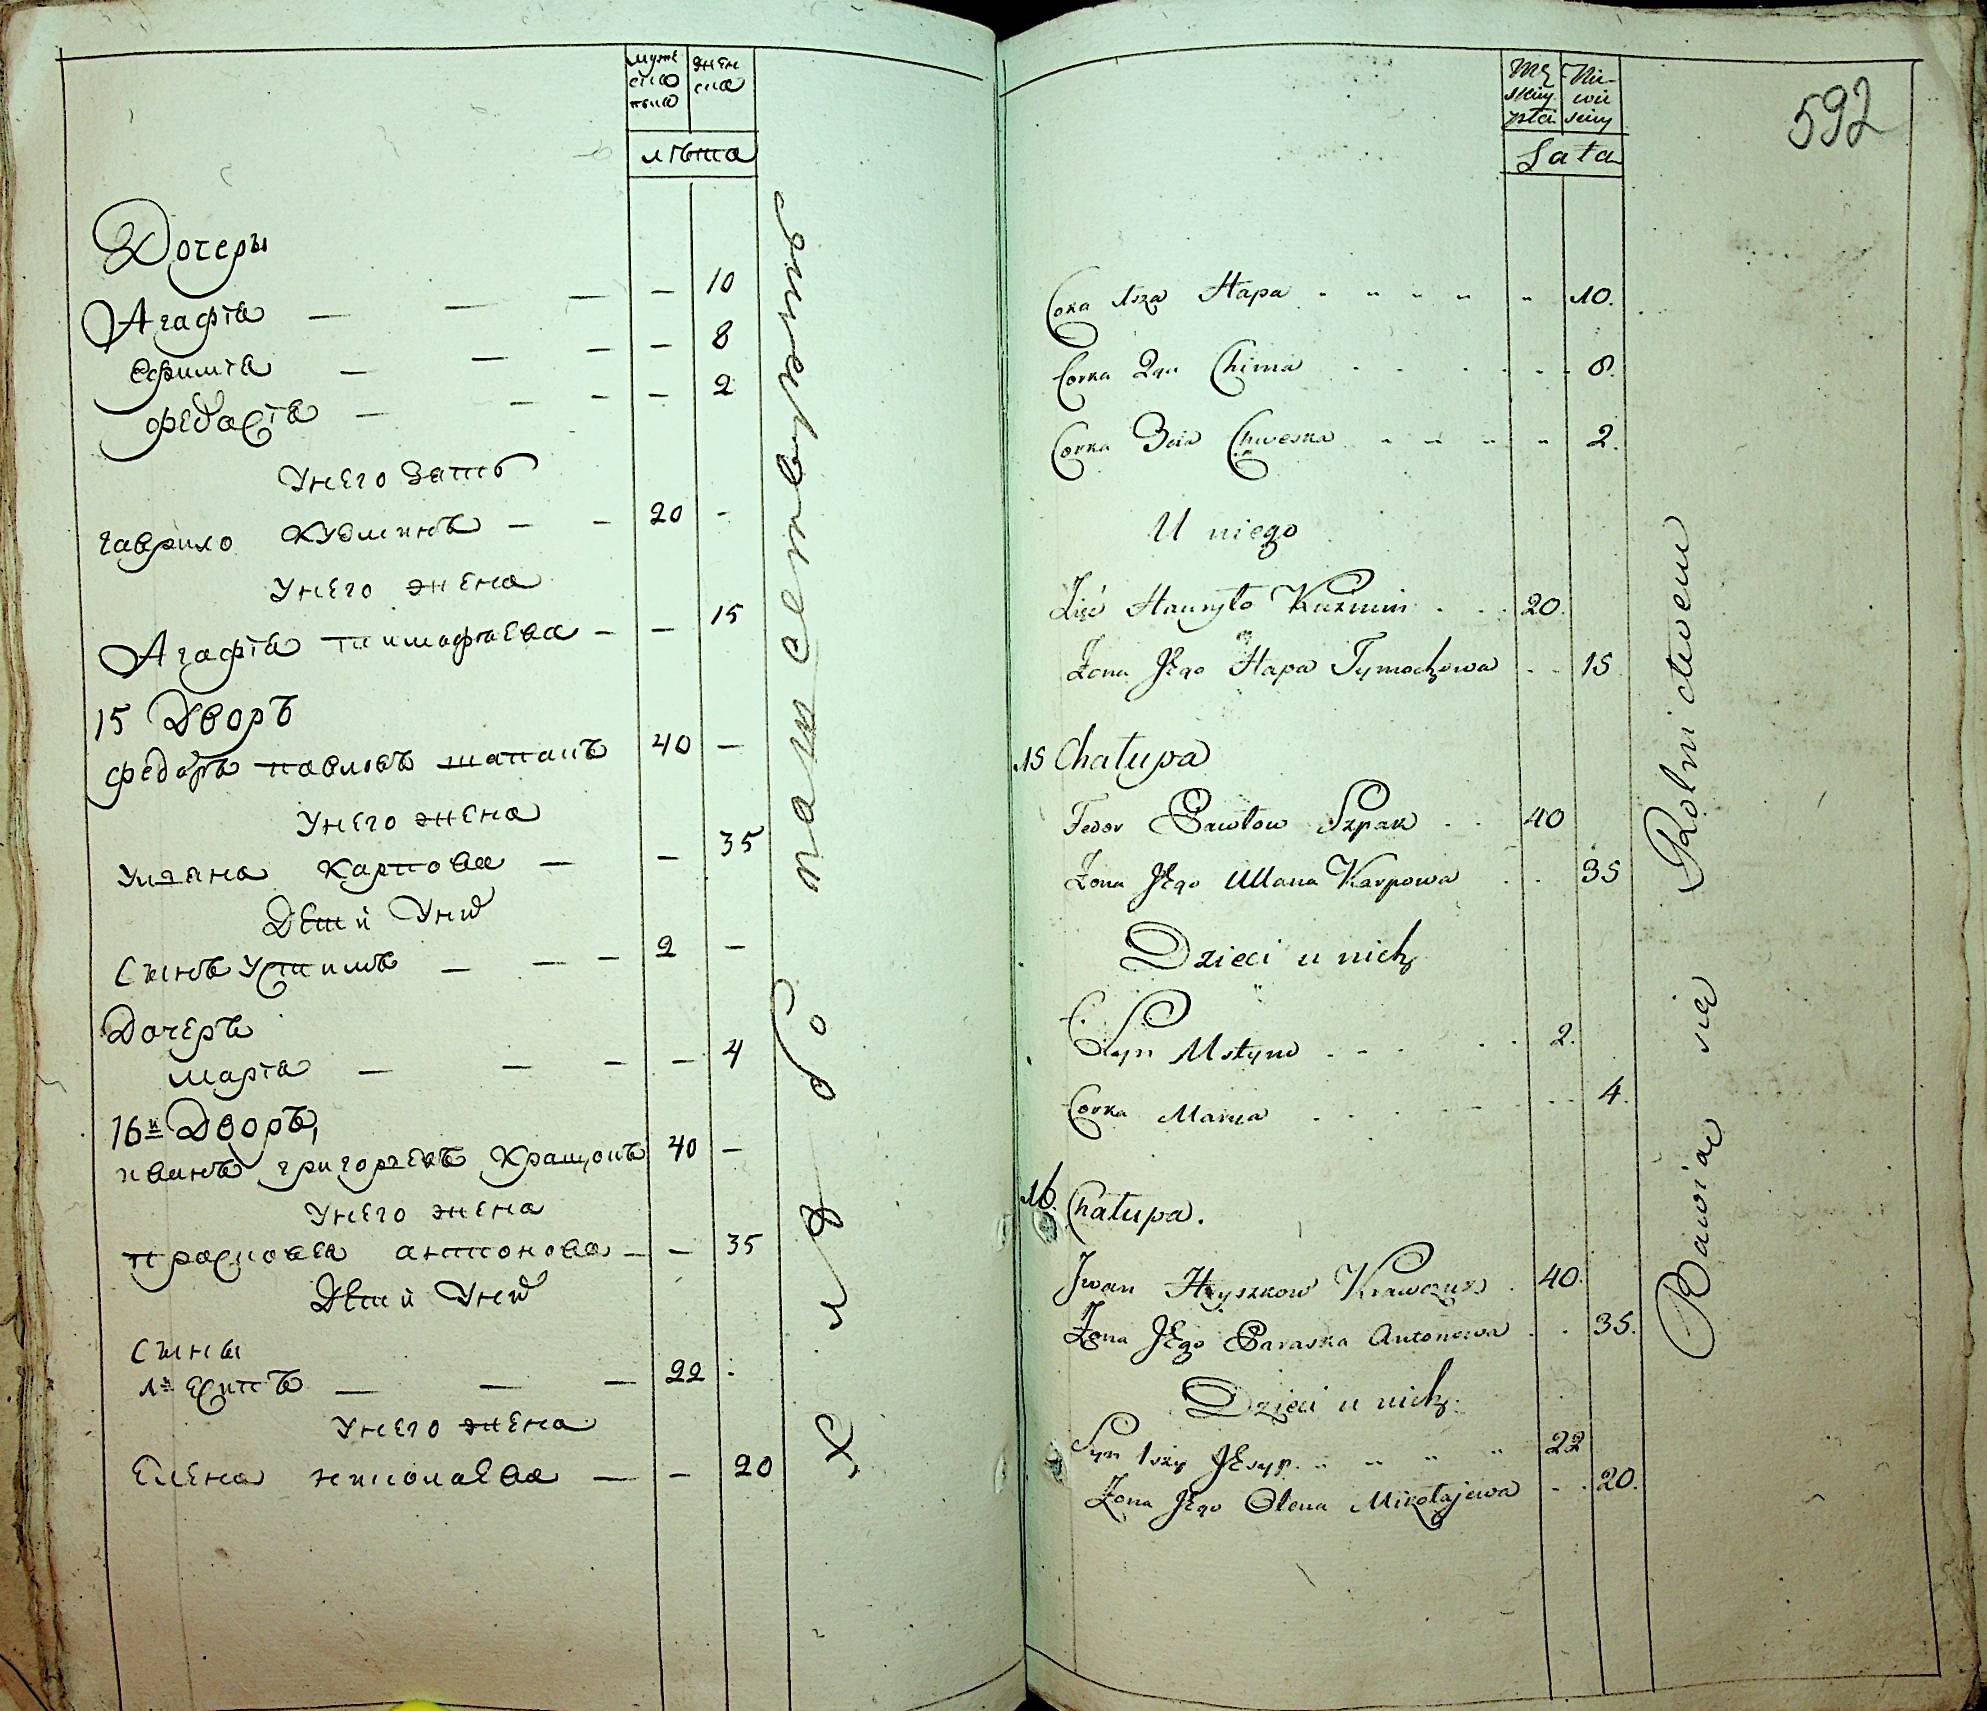 муже
ска
пола
жен
ска
лѣта
Дочеры
Агафiа — — — — 10
Ефимiа — — — — 8
федосiа — — — — 2
У него зать
гаврило кузминъ — — 20 -
У него жена
Агафiа тимофѣева — — 15
15 Дворъ
федоръ павловъ шпакъ 40 —
У него жена
Улiяна карпова — — 35
Дети У них
Сынъ Устимъ — — — 2 —
Дочеръ
марiа — — — — 4
16й Дворъ,
иванъ григорiевъ Кравцокъ 40 —
У него жена
прасковiа антонова — — 35
Дети У них
Сыны
1й Есипъ — — — 22 -
У него жена
Елена николаева — — 20
хлебопашествуютъ
592
Mę
skiey
płci
Nie
wie
sciey
Lata
Corka 1sza Hapa 10.
Corka 2ga Chima 8.
Corka 3cia Chweska 2.
U niego
Zięć Hauryło Kuzmin 20
Żona Jego Hapa Tymochowa 15
15 Chałupa
Fedor Pawłow Szpak 40
Żona Jego Ullana Karpowa 35
Dzieci u nich
Syn Ustym 2.
Corka Marya 4.
16. Chałupa.
Jwan Hryszkow Krawczuk 40.
Żona Jego Paraska Antonowa 35.
Dzieci u nich.
Syn 1szy Jesyp 22
Żona Jego Olena Mikołajewa 20.
Bawią się Rolnictwem